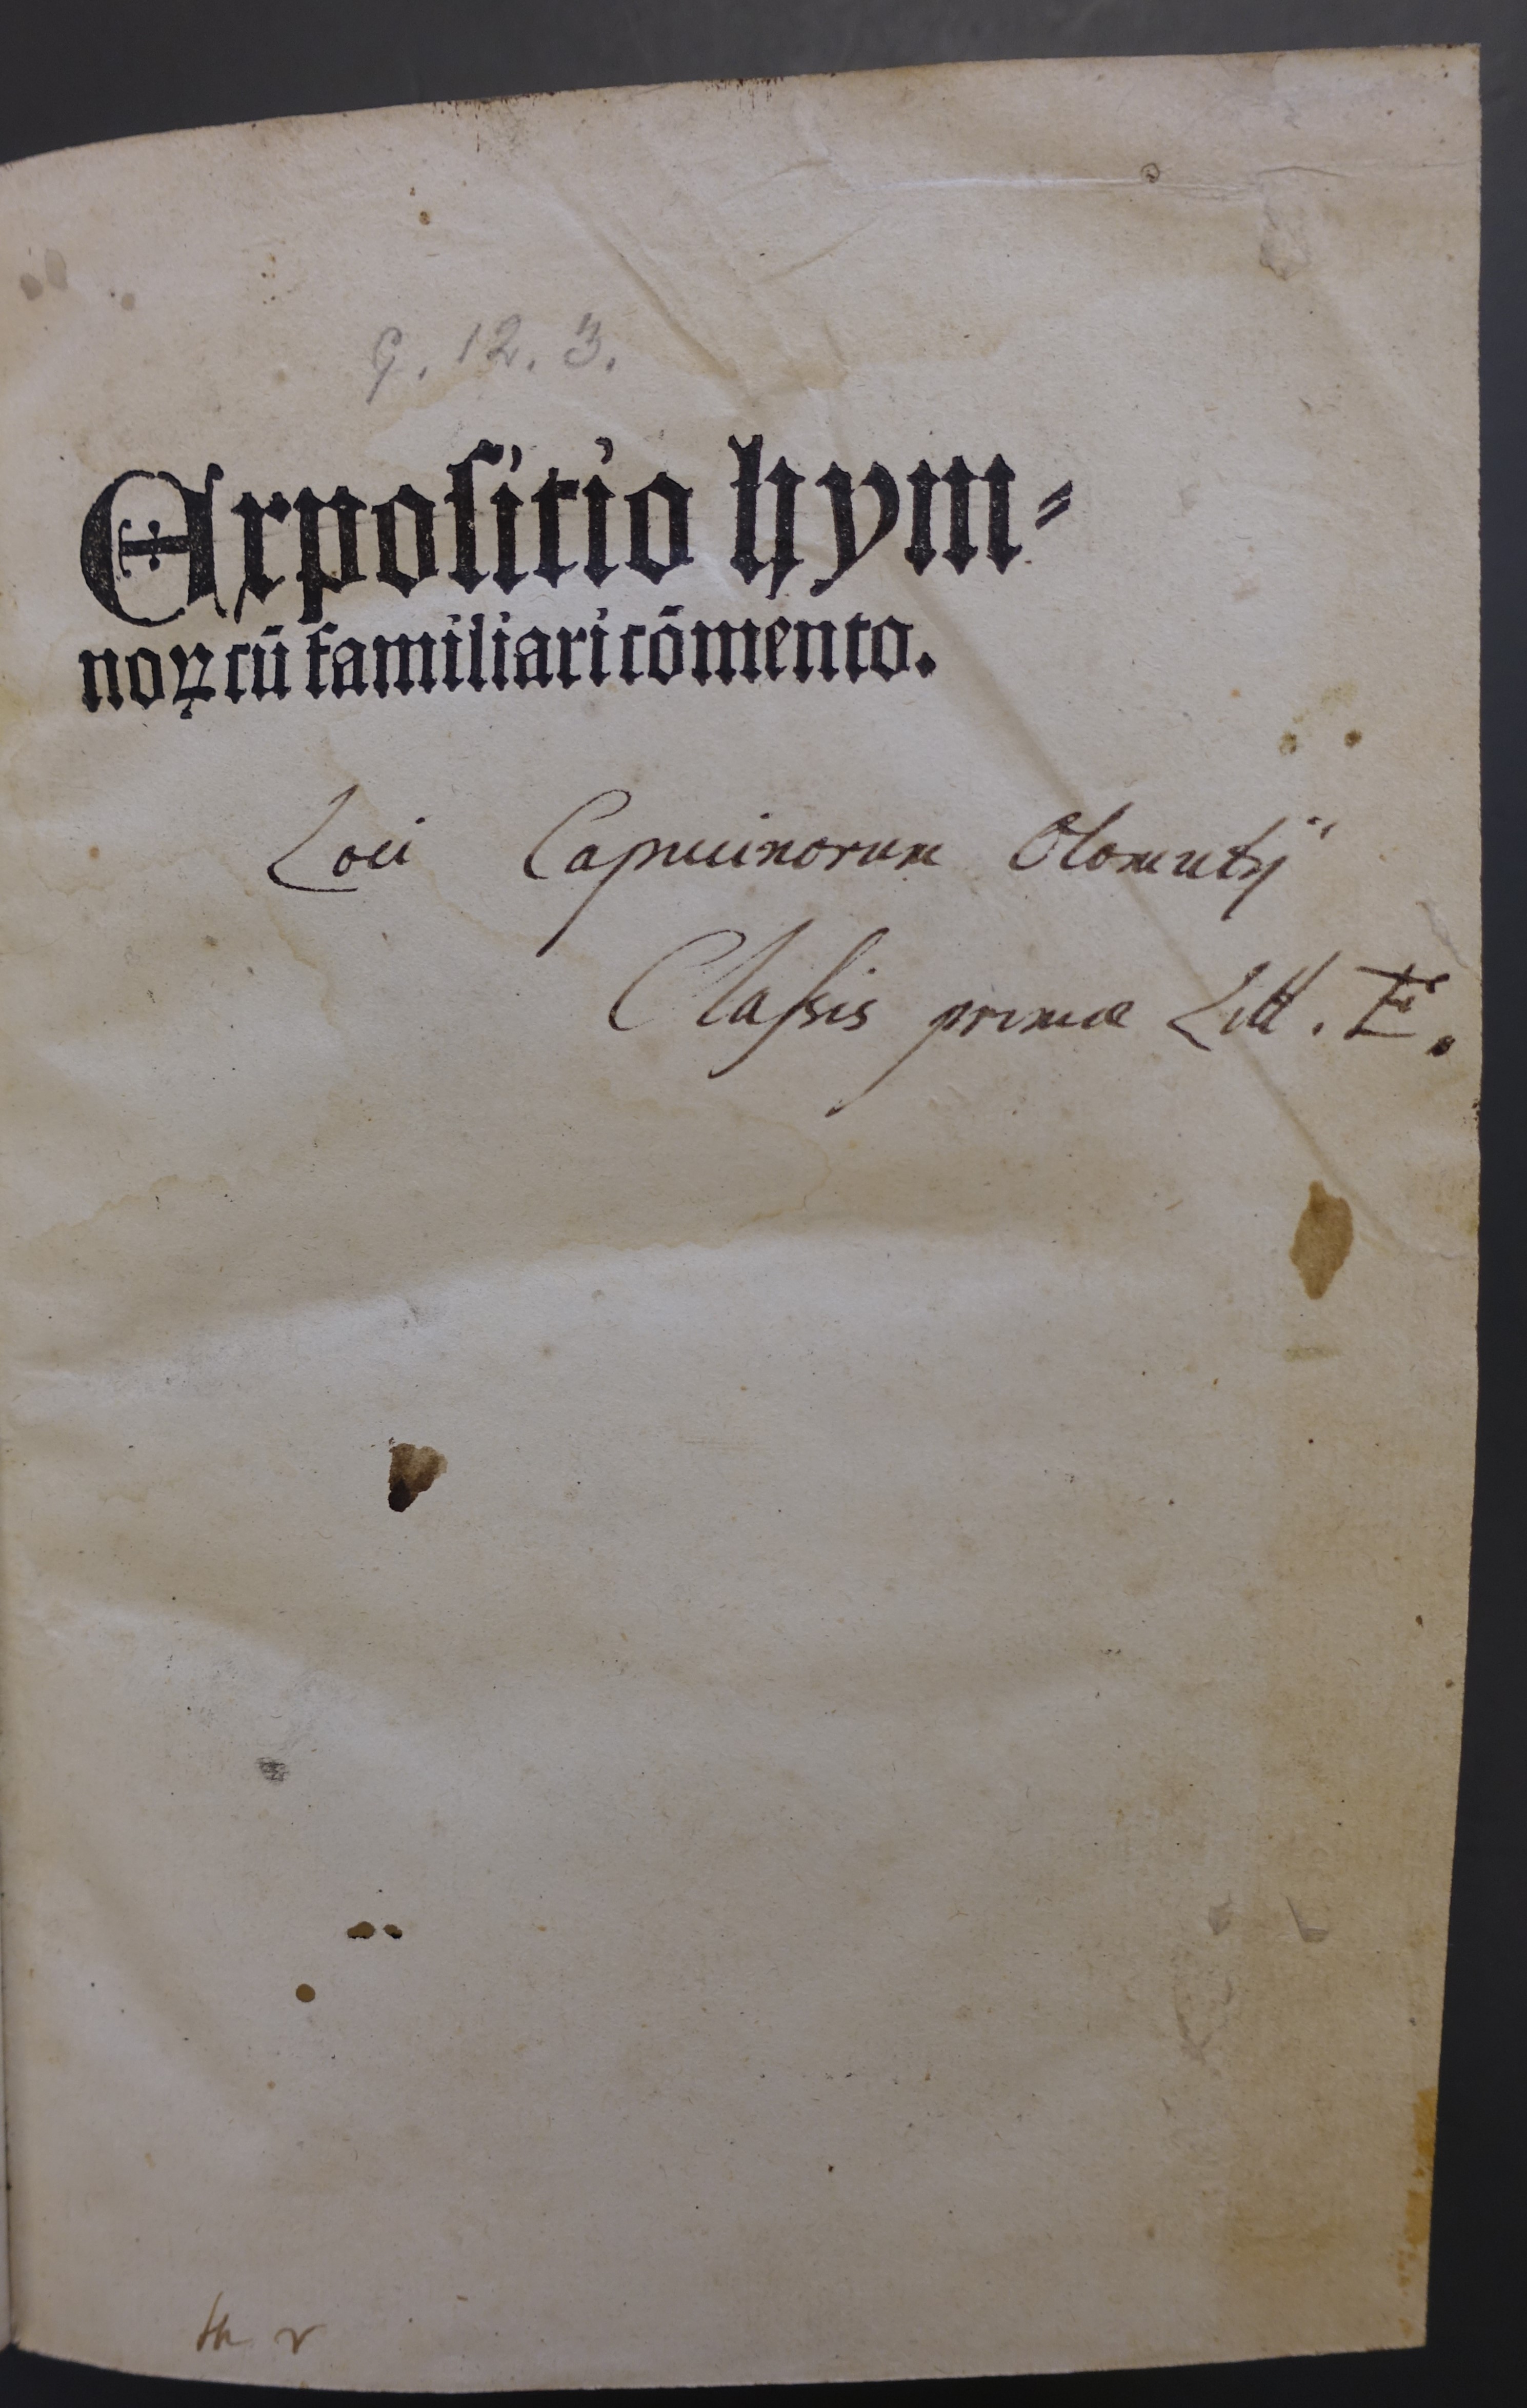 G. 12. 3.
Expositio hym⸗
noꝝ cū familiari cōmento.
Loci Capucinorum Olomutÿ
Classis primæ Litt. E.